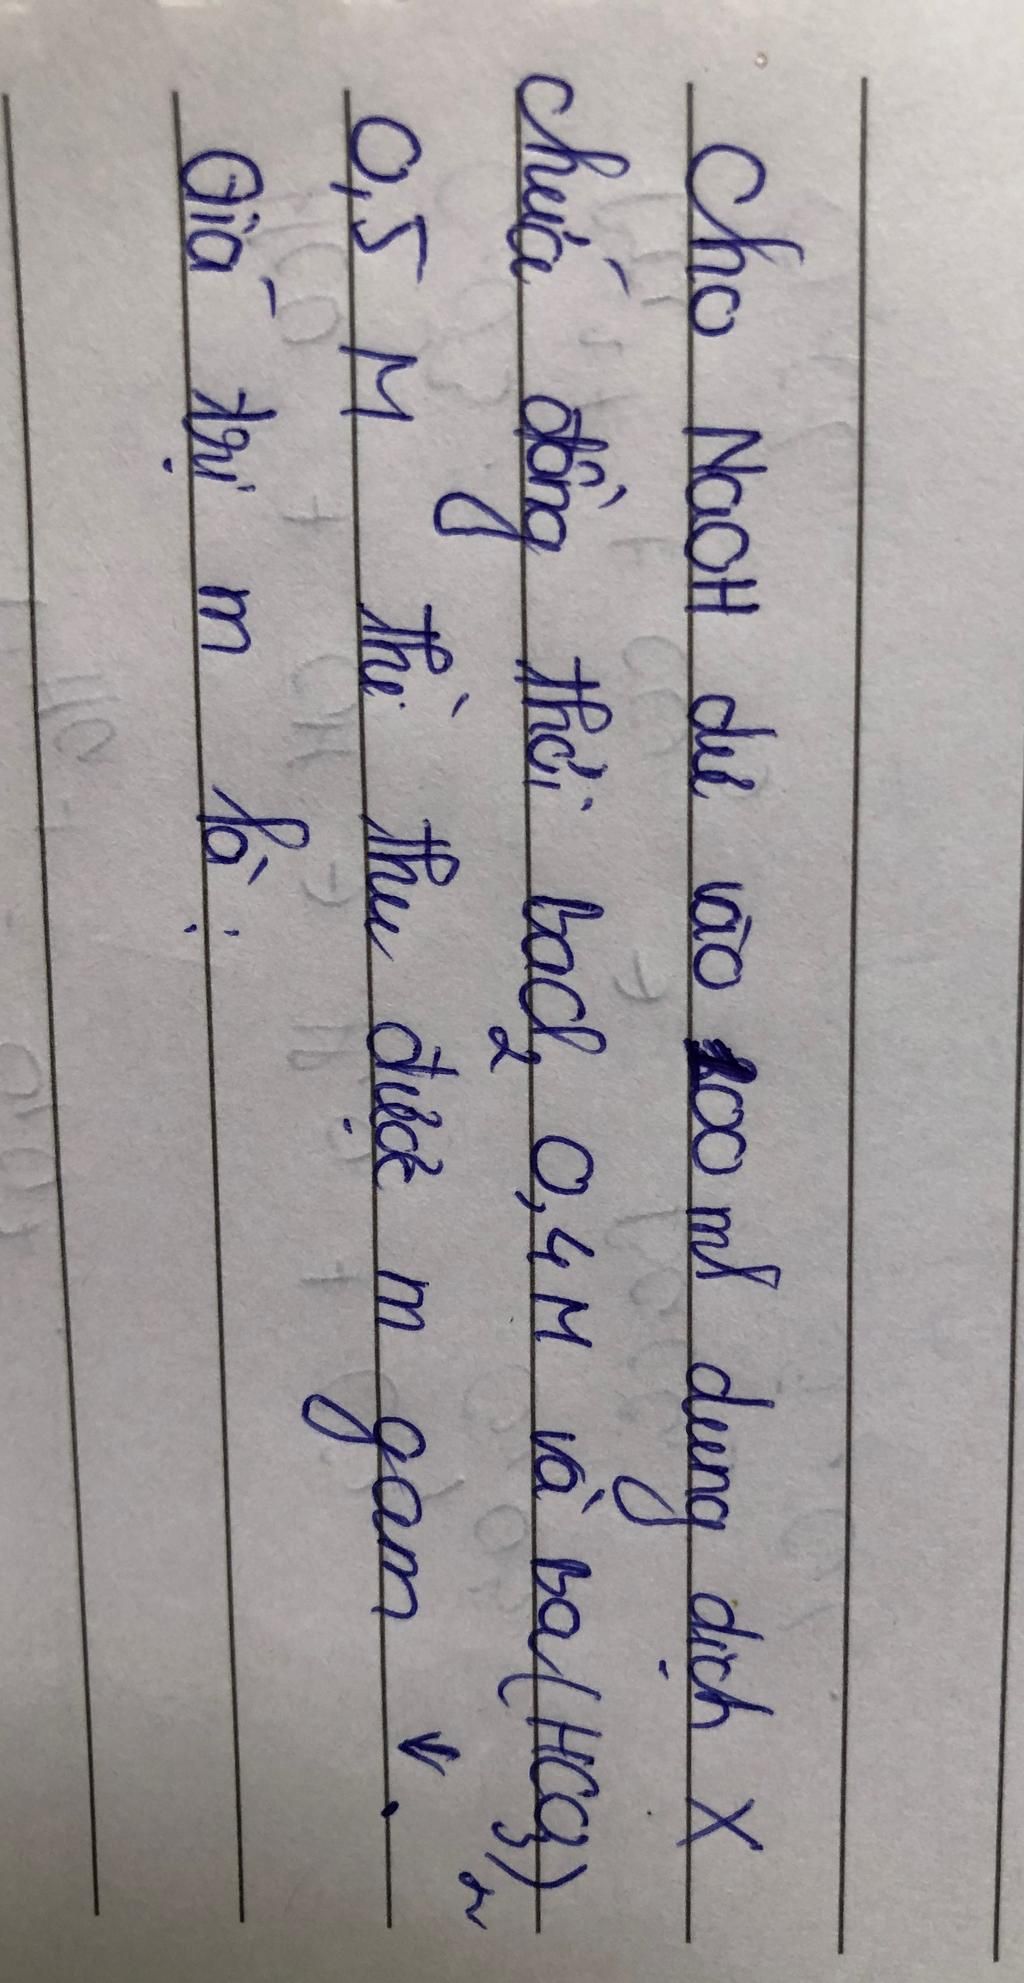 Cho NaOH dư vào 100 ml dung dịch X
chứa đồng thời bacl₂ 0,4 M và ba(HCO₃)₂
0,5 M thì thu được m gam ↓.
Giá trị m là: